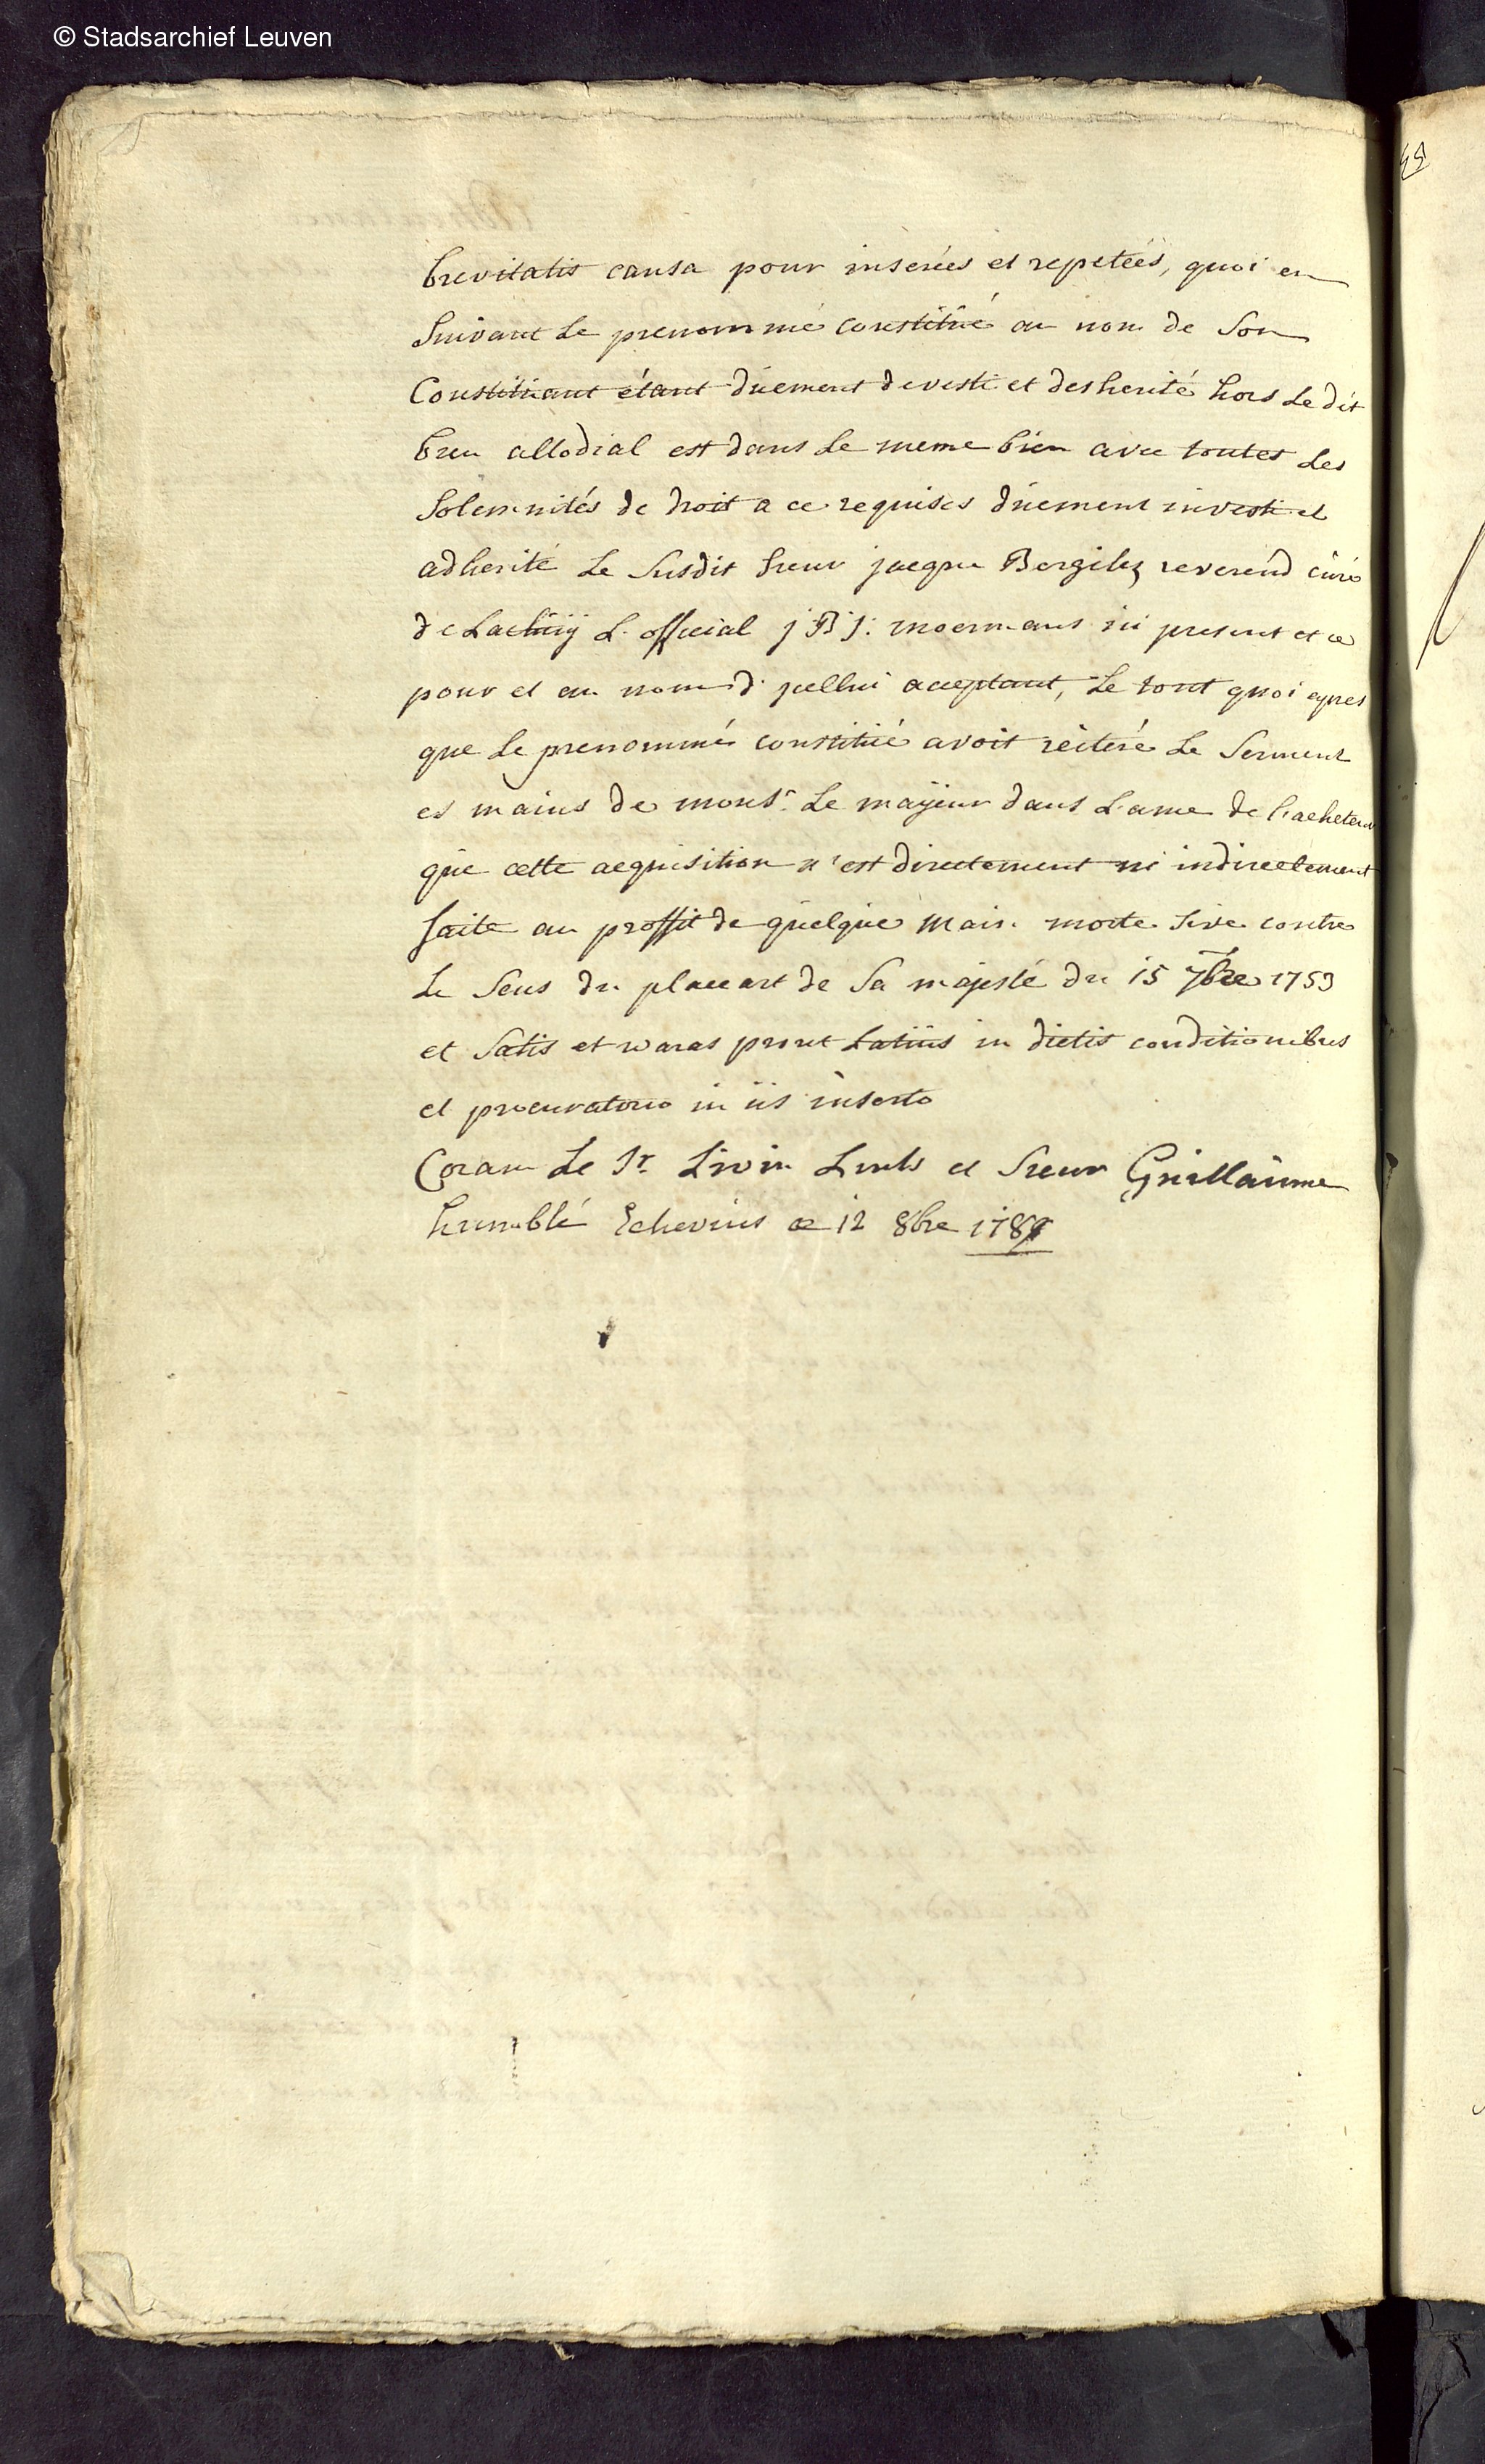 © Stadsarchief Leuven
brevitatis causa pour inserées et repetées, quoi en
suivant Le prenommé constitüé au nom de son
Constitüant étant düement devesti et desherité hors Le dit
bien allodial est dans Le meme bien avec toutes Les
solemnités de droit a ce requises düement investi et
adherité Le susdit sieur jacque Bergilez reverend cüré
de Lathüij L. official j B J: moermans ici present et ce
pour et au nom d'jcellui acceptant, Le tout quoi apres
que Le prenommé constitüé avoit réiteré Le serment
es mains de mons:r Le mayeur dans L'ame de l'acheteur
que cette acquisition n'est directement ni indirectement
faite au proffit de quelque main morte sive contre
Le sens du placcart de Sa majesté du 15 7bre 1753
et satis et waras prout Latiüs in dictis conditionibus
et procuratorio in iis inserto
Coram Le Sr. Livin et sieur Guillaume
humblé Echevins ce 12 8bre